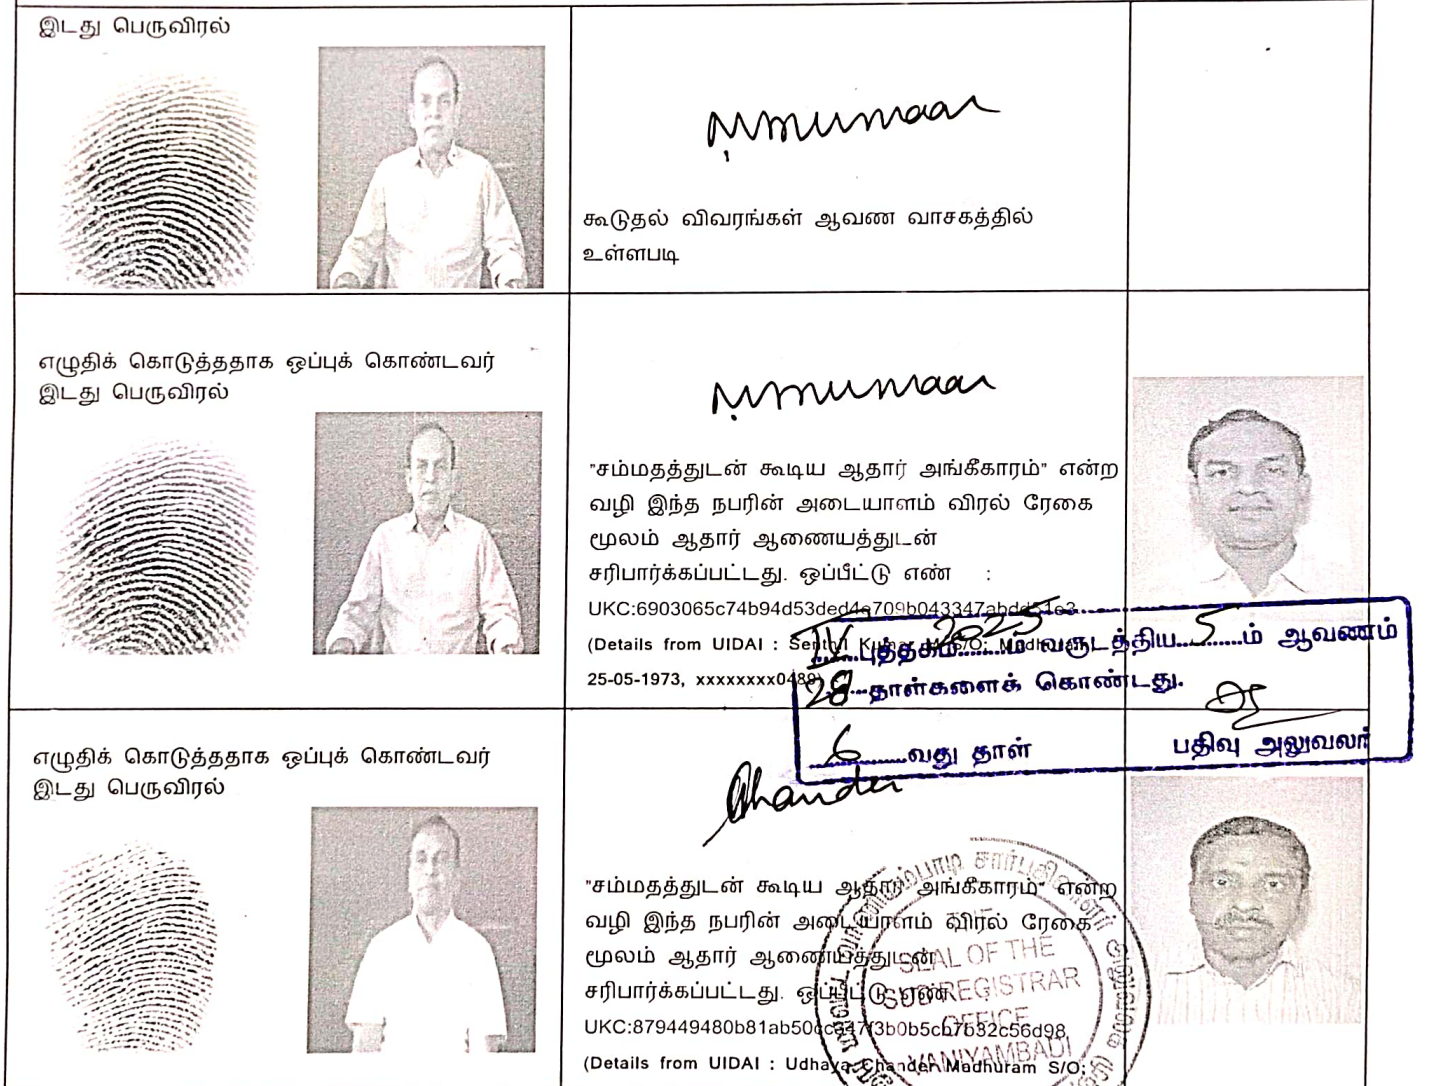 இடது பெருவிரல்
கூடுதல் விவரங்கள் ஆவண வாசகத்தில்
உள்ளபடி
எழுதிக் கொடுத்ததாக ஒப்புக் கொண்டவர்
இடது பெருவிரல்
"சம்மதத்துடன் கூடிய ஆதார் அங்கீகாரம்" என்ற
வழி இந்த நபரின் அடையாளம் விரல் ரேகை
மூலம் ஆதார் ஆணையத்துடன்
சரிபார்க்கப்பட்டது. ஒப்பீட்டு எண் :
(Details from UIDAI : Senthil Kumar M S/O: Madhuram,
25-05-1973, xxxxxxxx0489)
IV புத்தகம் 2025 ம் வருடத்திய 5 ம் ஆவணம்
28 தாள்களைக் கொண்டது.
6 வது தாள் பதிவு அலுவலர்
எழுதிக் கொடுத்ததாக ஒப்புக் கொண்டவர்
இடது பெருவிரல்
Chander
"சம்மதத்துடன் கூடிய ஆதார் அங்கீகாரம்" என்ற
வழி இந்த நபரின் அடையாளம் விரல் ரேகை
மூலம் ஆதார் ஆணையத்துடன்
சரிபார்க்கப்பட்டது. ஒப்பீட்டு எண் :
(Details from UIDAI : Udhaya Chander Madhuram S/O:
THE
SEAL OF THE
SUB REGISTRAR
OFFICE
VANIYAMBADI